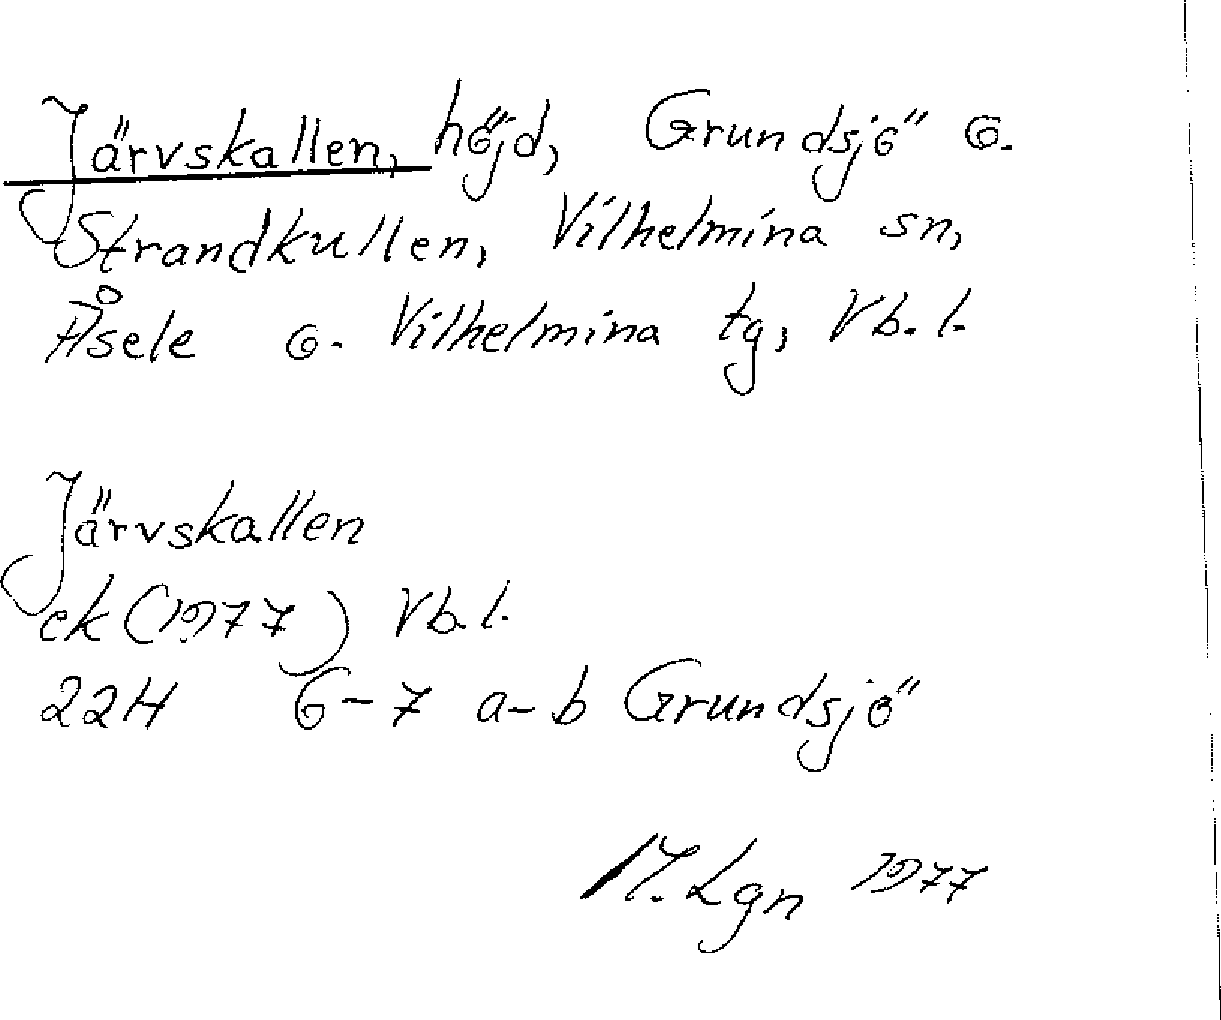 Järvskallen, höjd, Grundsjö o.
Strandkullen, Vilhelmina sn,
Åsele o. Vilhelmina tg, Vb. l.
Järvskallen
ek (1977) Vb. l.
22H 6-7 a-b Grundsjö
M. Lgn 1977